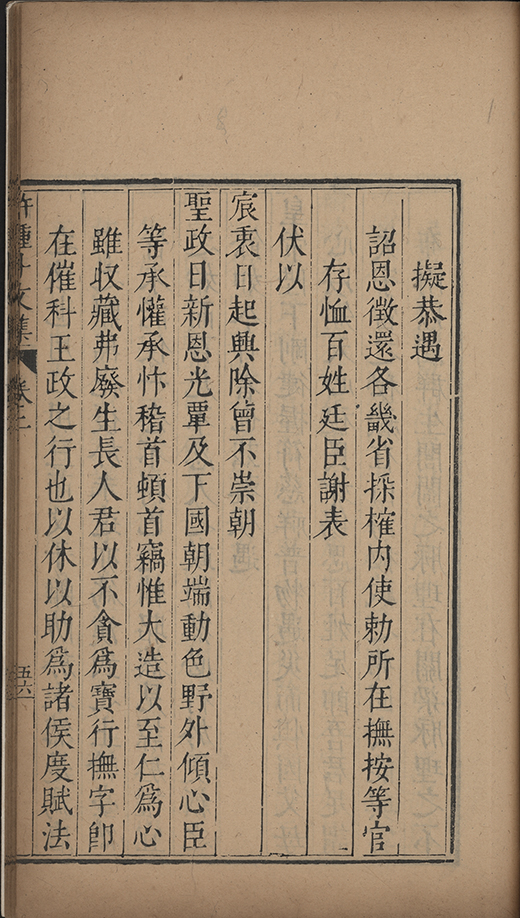 擬恭遇
詔恩徵還各畿省採榷内使勅所在撫按等官
存恤百姓廷臣謝表
伏以
宸衷日起興除曾不崇朝
聖政日新恩光覃及下國朝端動色野外傾心臣
等承懽承忭稽首頓首竊惟大造以至仁爲心
雖収藏弗廢生長人君以不貪爲寶行撫字卽
在催科王政之行也以休以助爲諸侯度賦法
許鍾斗文集
卷二
五六